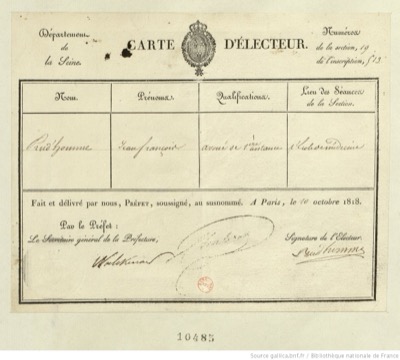 Département
de
la Seine.
CARTE D'ÉLECTEUR.
Numéros
de la section, 19
de l'inscription, 513
Nom. Prénoms. Qualifications. Lieu des Séances
de la Section.
Prud'homme Jean françois avoué de
Fait et délivré par nous, PRÉFET, soussigné, au susnommé. A Paris, le 10 octobre 1818.
Par le Préfet:
Le Secrétaire général de la Préfecture,
Signature de l'Electeur.
Walckenaer
Prud'homme
10485
Source gallica.bnf.fr / Bibliothèque nationale de France